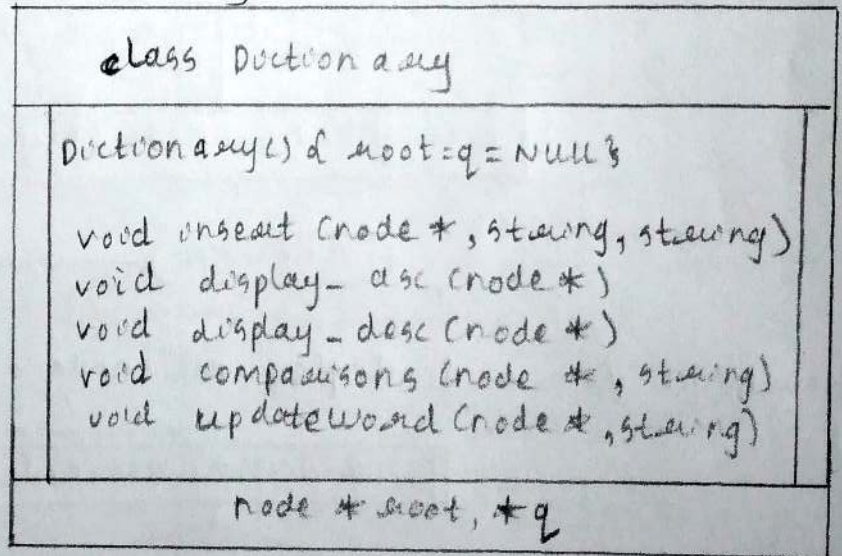 class Dictionary
Dictionary() { root=q=NULL }
void insert (node *, string, string)
void display_asc (node *)
void display_desc (node *)
void comparisons (node *, string)
void updateWord (node *, string)
node * root, *q